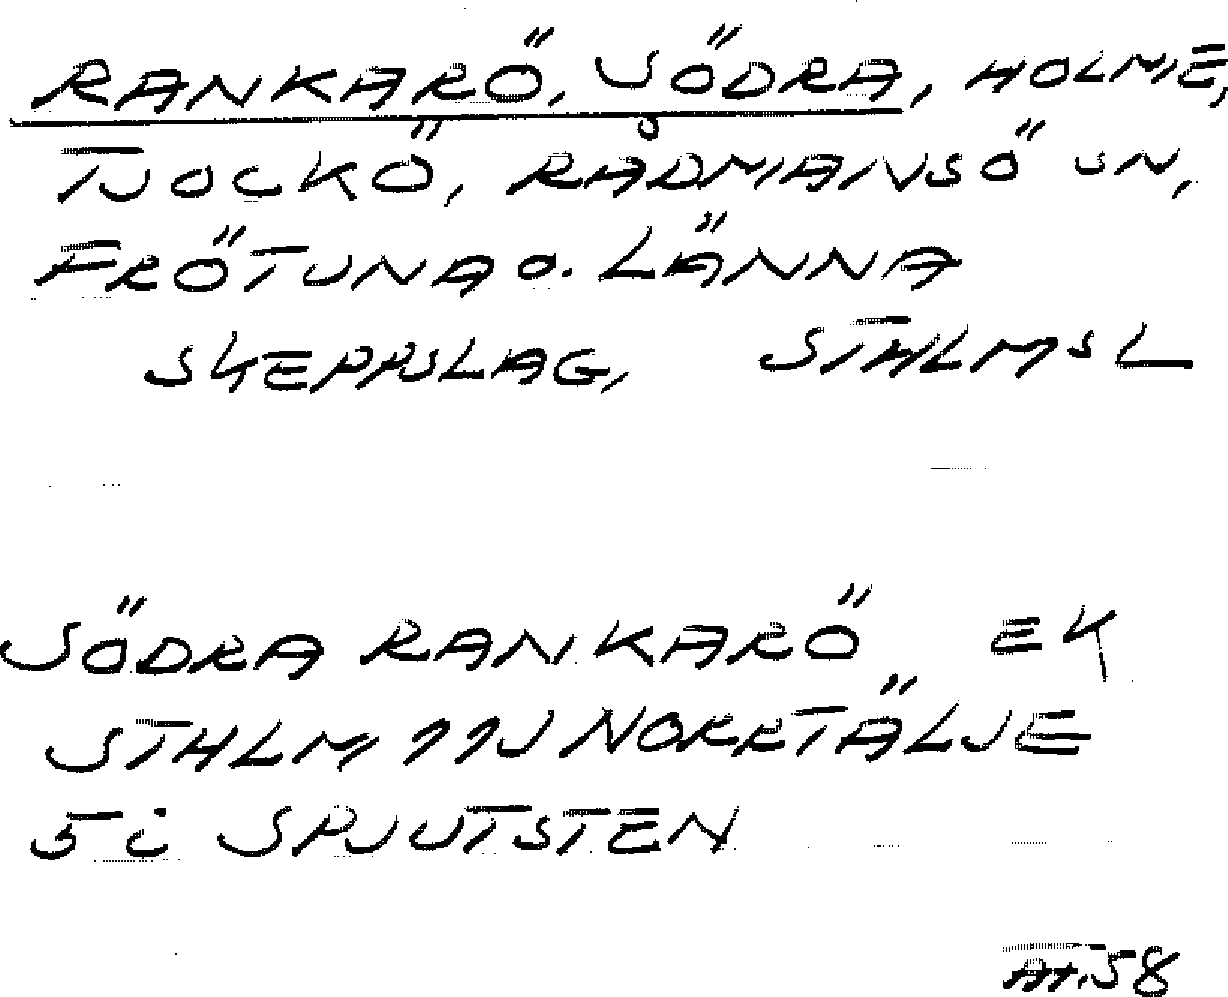 RANKARÖ, SÖDRA, HOLME,
TJOCKÖ, RÅDMANSÖ SN,
FRÖTUNA O. LÄNNA
SKEPPSLAG, STHLMSL
SÖDRA RANKARÖ EK
STHLM 11J NORRTÄLJE
5c SPJUTSTEN
58